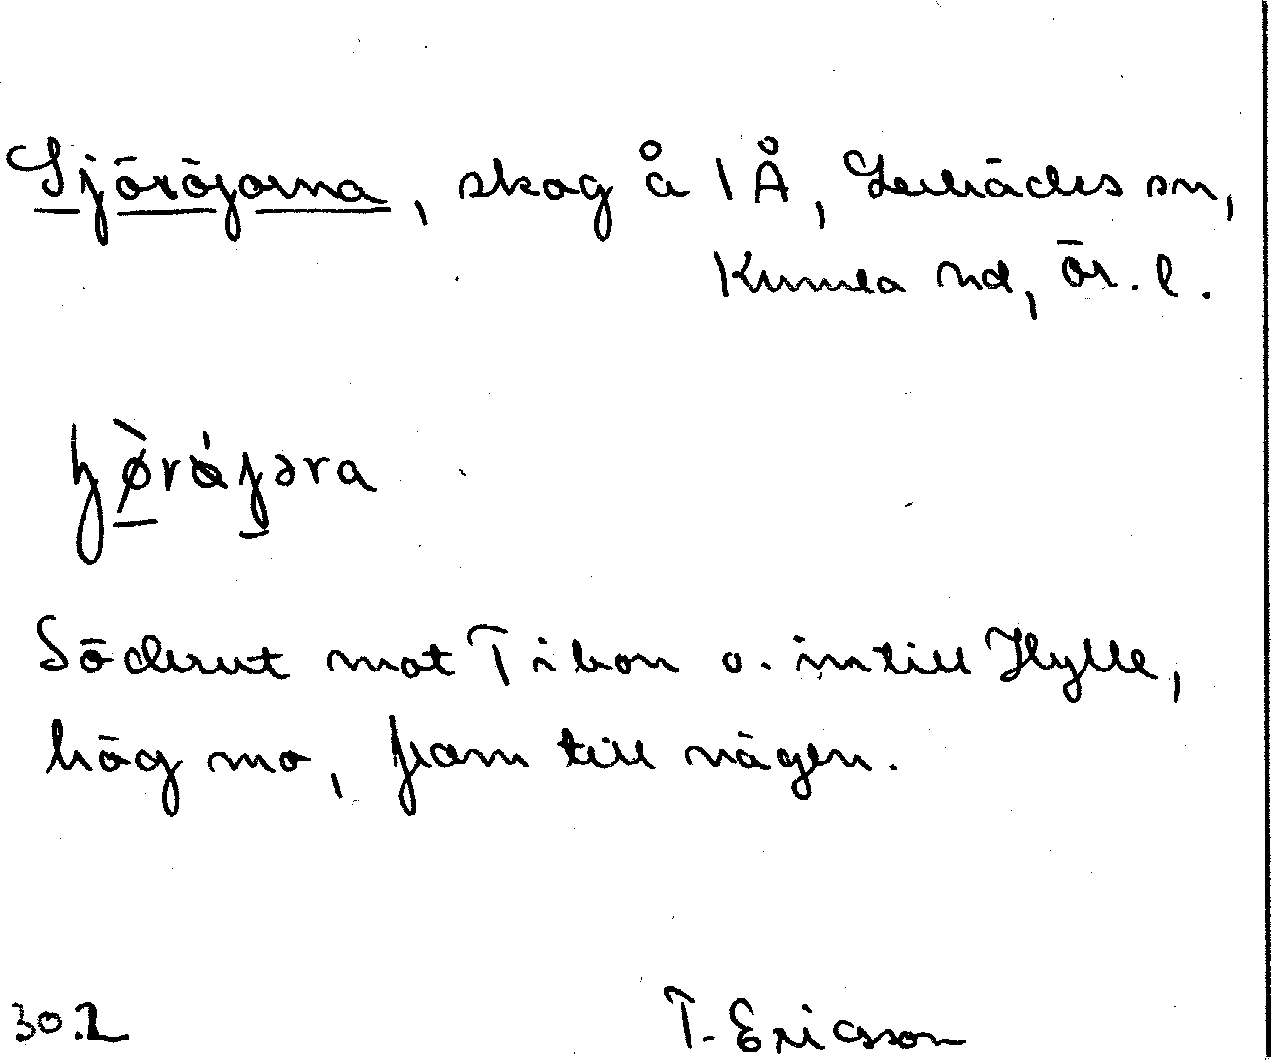 Sjöröjorna, skog å 1 Å, Lerbäcks sn,
Kumla hd, Ör. l.
Söderut mot Tibon o. intill Hylle,
hög mo, fram till vägen.
302 T. Ericsson